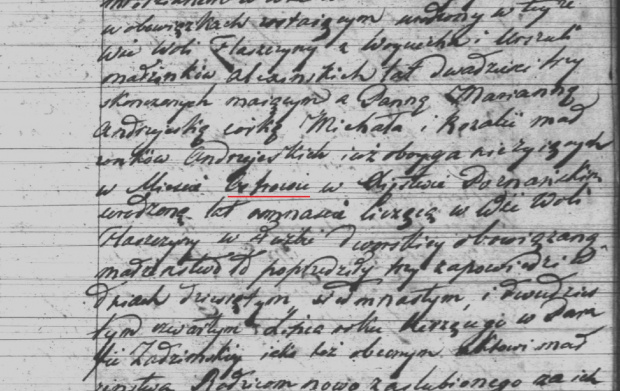 w obowiązkach zostaiącym urodzony w tey ze
Wsi Woli Flaszczyny z Woyciecha i Urszuli
małżonków lat dwadzieścia trzy
skonczonych maiącym a Panną Marianną
Andrzejeską corką Michała i Rozalii mał
zonków Andrzejeskich iuż oboyga nieżyiących
w Mieście w Xięstwie Poznańskim
urodzoną lat ośmnaście liczącą w Wsi Woli
Flaszczyny w służbie Dworskiey obowiązaną
małżeństwo to poprzedziły trzy zapowiedzi w
dniach dziewiątym, siedmnastym, i dwudzies
tym czwartym Lipca roku bieżącego w Para
fii Zadzimskiey iako też obecnym aktowi mał
żeństwa Rodzicom nowo zaslubionego za ich